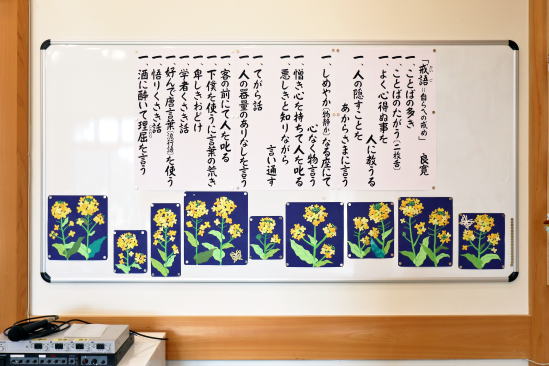 「戒語＝自らへの戒め」　良寛
一、ことばの多き
一、ことばのたがう（二枚舌）
一、よく心得ぬ事を
人に教うる
一、人の隠すことを
あからさまに言う
一、しめやか（物静か）なる座にて
心なく物言う
一、憎き心を持ちて人を叱る
一、悪しきと知りながら
言い通す
一、てがら話
一、人の器量のありなしを言う
一、客の前にて人を叱る
一、下僕を使うに言葉の荒き
一、卑しきおどけ
一、学者くさき話
一、好んで唐言葉（流行語）を使う
一、悟りくさき話
一、酒に酔いて理屈を言う